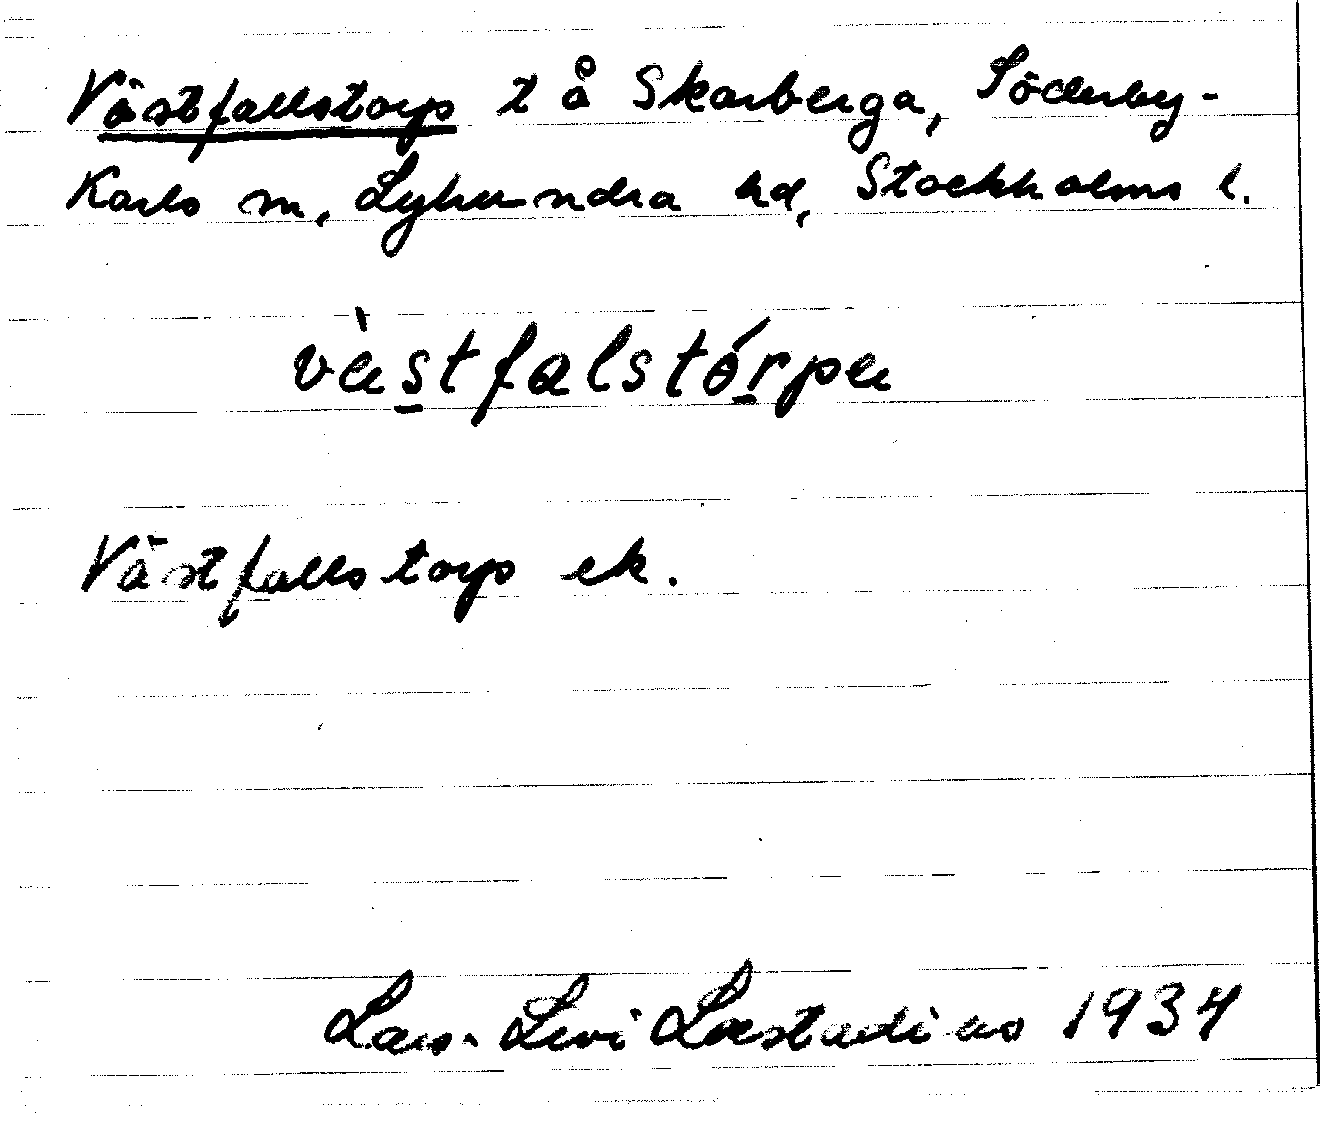 Västfallstorp t å Skarberga, Söderby-
Karls sn, Lyhundra hd, Stockholms l.
vä̀s̲tfalstór̲pa
Västfallstorp ek.
Lars-Levi Læstadius 1934